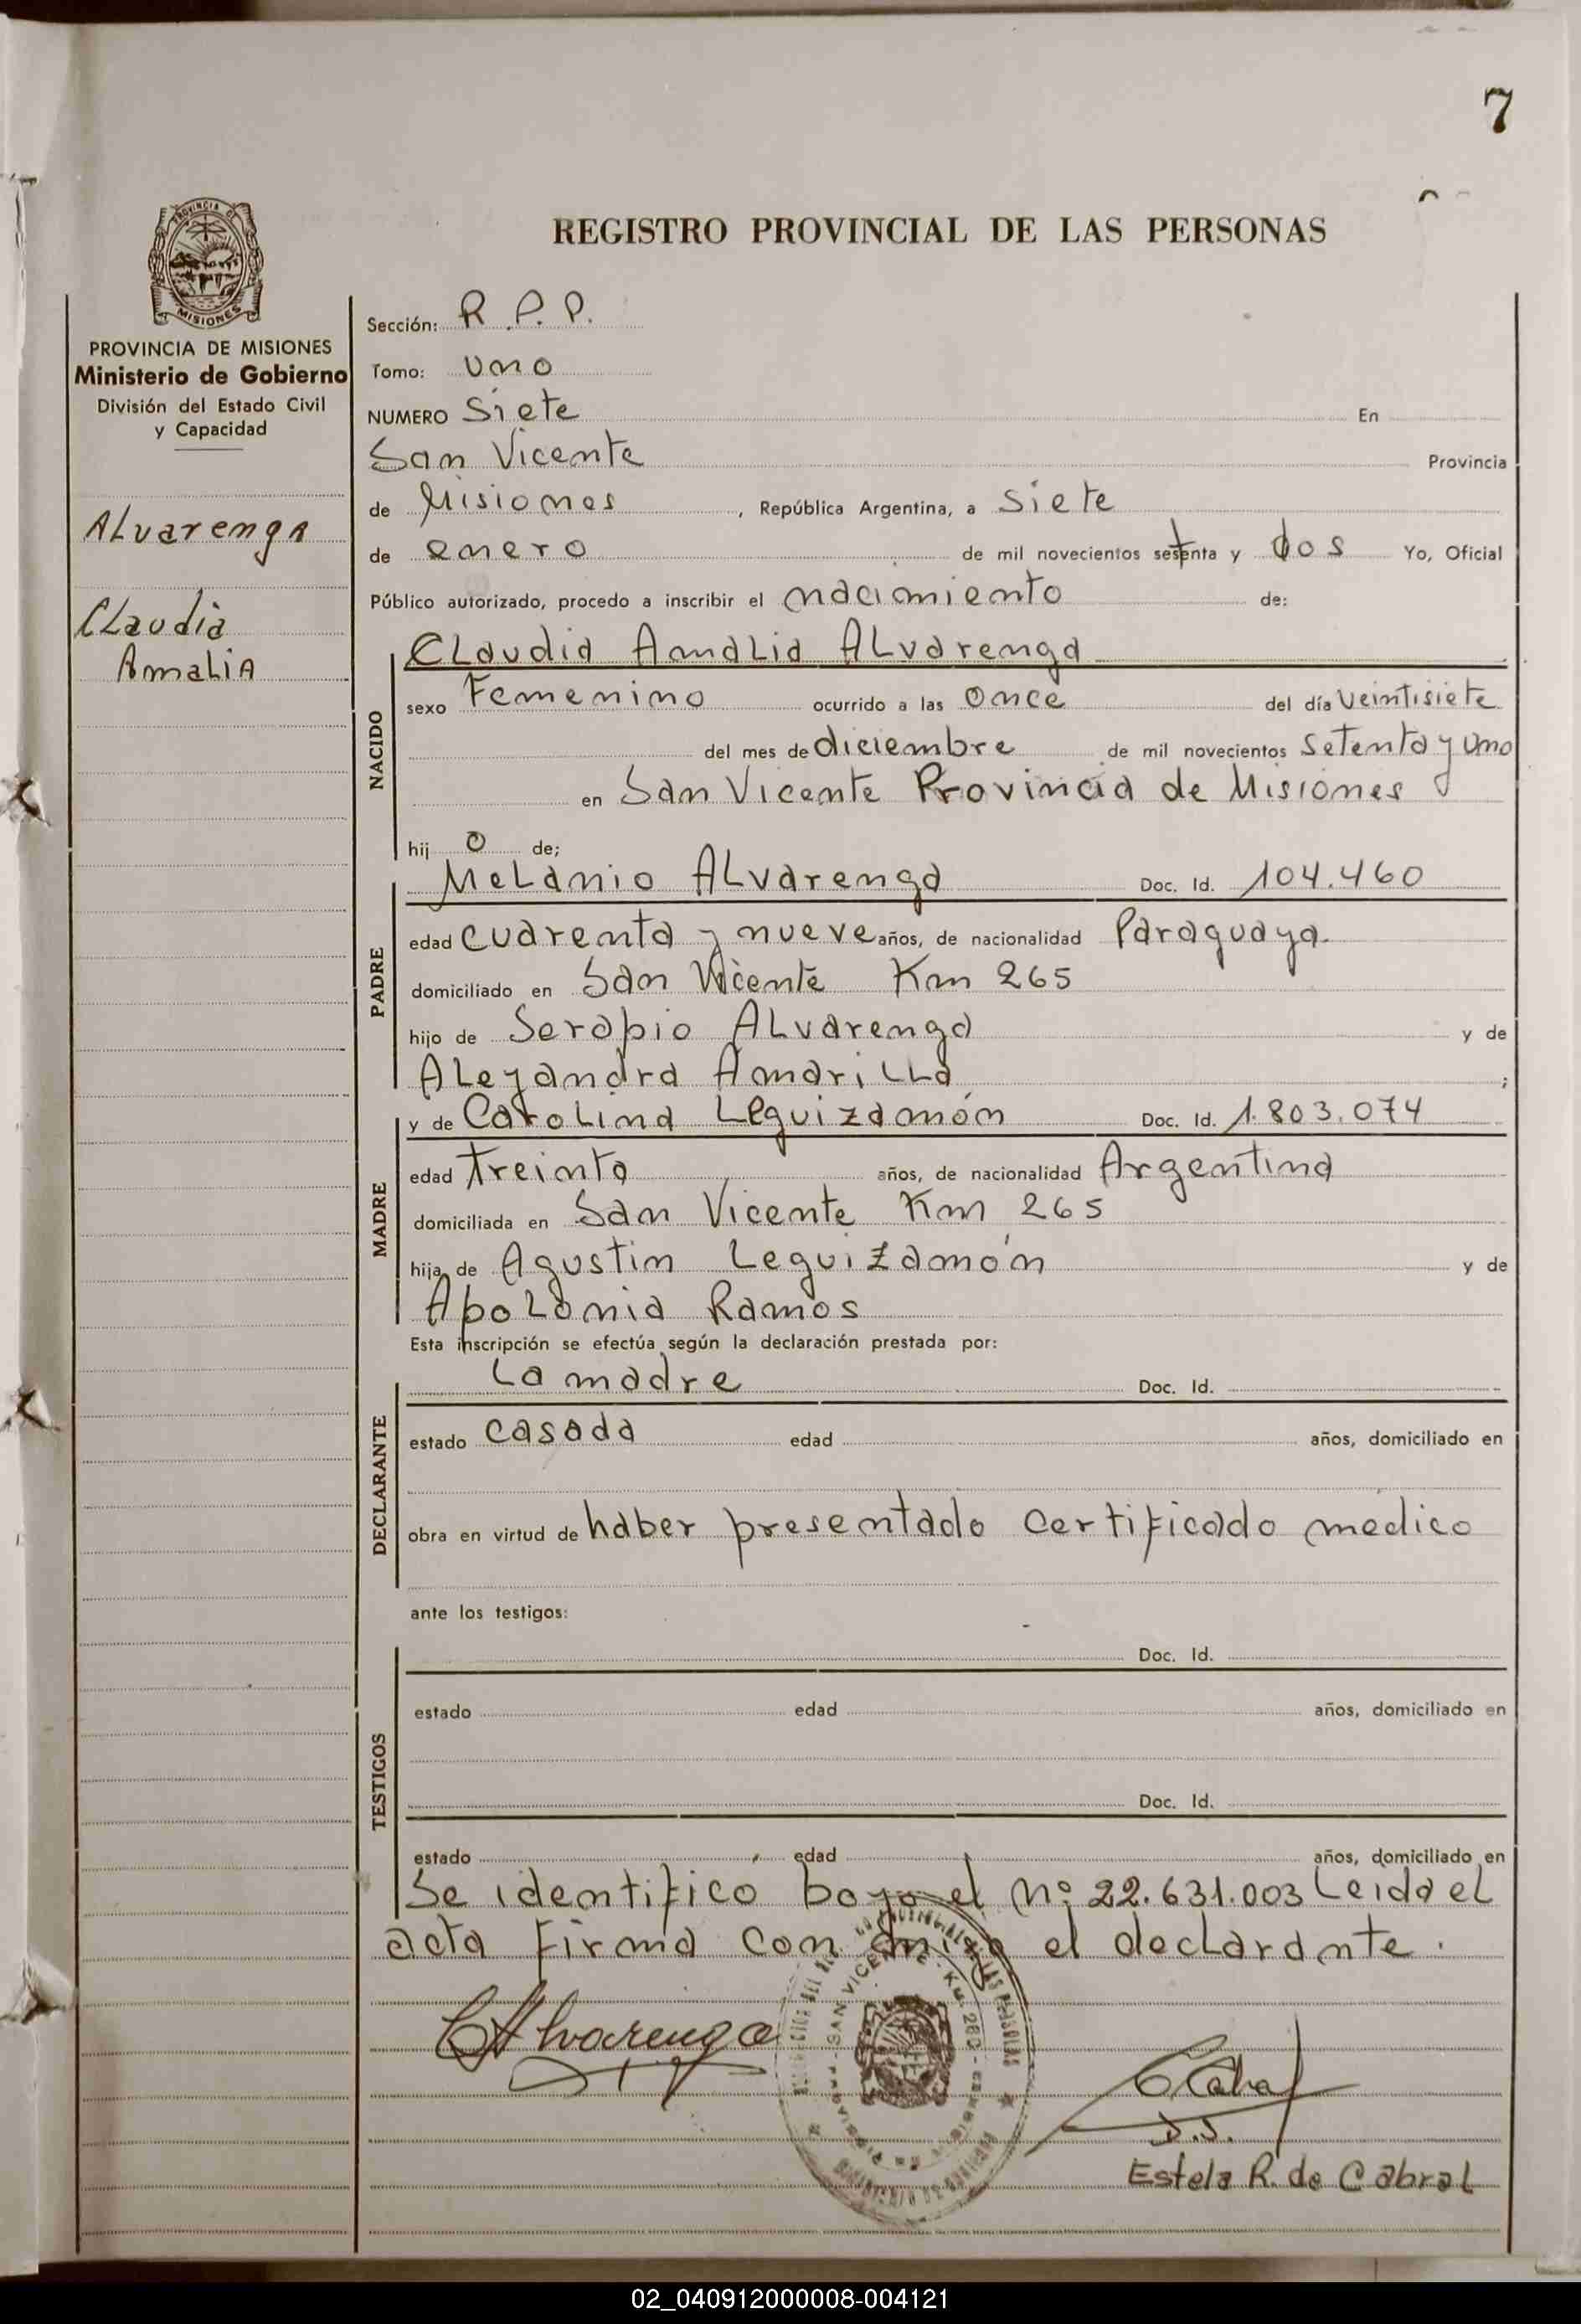 7
PROVINCIA DE
MISIONES
REGISTRO PROVINCIAL DE LAS PERSONAS
PROVINCIA DE MISIONES
Ministerio de Gobierno
División del Estado Civil
y Capacidad
Alvarenga
Claudia
Amalia
Sección: R.P.P.
Tomo: Uno
NUMERO Siete En
San Vicente Provincia
de Misiones, República Argentina, a Siete
de enero de mil novecientos setenta y dos Yo, Oficial
Público autorizado, procedo a inscribir el nacimiento de:
NACIDO
Claudia Amalia Alvarenga
sexo Femenino ocurrido a las Once del día veintisiete
del mes de diciembre de mil novecientos Setenta y Uno
en San Vicente Provincia de Misiones
hij o de;
PADRE
Melanio Alvarenga Doc. Id. 104.460
edad cuarenta y nueve años, de nacionalidad Paraguaya.
domiciliado en San Vicente Km 265
hijo de Serapio Alvarenga y de
Aleyandra Amarilla ;
MADRE
y de Carolina Leguizamón Doc. Id. 1.803.074
edad treinta años, de nacionalidad Argentina
domiciliada en San Vicente Km 265
hija de Agustin Leguizamón y de
Apolonia Ramos
Esta inscripción se efectúa según la declaración prestada por:
DECLARANTE
La madre Doc. Id.
estado casada edad años, domiciliado en
obra en virtud de haber presentado certificado medico
ante los testigos:
TESTIGOS
Doc. Id.
estado edad años, domiciliado en
Doc. Id.
estado edad años, domiciliado en
Se identificó bayo el nº 22.631.003 Leida el
acta firma con migo el declarante.
SAN VICENTE - Km. 260 -
Alvarenga
Cabral
D.S.
Estela R. de Cabral
02_040912000008-004121